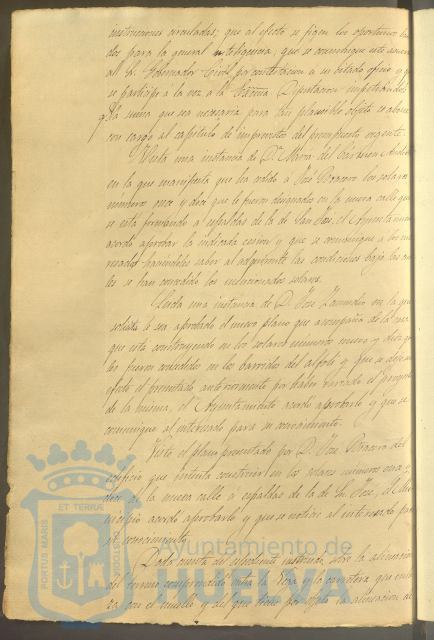 instrucciones circuladas; que al efecto se fijen los oportunos
dos para la general inteligencia; que se comunique este acuer
al Sr. Gobernador Civil por contestacion a su citado oficio y q
se participe a la vez a la Excma. Diputacion
la suma que sea necesaria para tan plausible objeto se abone
con cargo al capitulo de imprevistos del presupuesto vigente.
Vista una instancia de Dª Maria del Carmen
en la que manifiesta que ha cedido a José Bracero los solares
numeros once y doce que le fueron designados en la nueva calle que
se esta formando a espaldas de la de San José, el Ayuntamiento
acordó aprobar la indicada cesion y que se comunique a los inte
resados haciendole saber al adquirente las condiciones bajo las cua
les se han concedido los mencionados solares.
Leida una instancia de D. José en la que
solicita le sea aprobado el nuevo plano que acompaña de la casa
que está construyendo en los solares numeros nueve y diez q
les fueron concedidos en los barridos del alfolí y que se deje sin
efecto el presentado anteriormente por haber variado el proyecto
de la misma, el Ayuntamiento acordó aprobarlo y que se
comunique al interesado para su conocimiento.
Visto el plano presentado por D. José Bracero del
edificio que intenta construir en los solares numeros once y
doce de la nueva calle a espaldas de la de Sn José, el Mu
nicipio acordó aprobarlo y que se noticie al interesado para
su conocimiento.
Dado cuenta del espediente instruido sobre la alineacion
del terreno comprendido entre la y la carretera que
por el muelle y del que tiene por objeto la alineacion de
PORTUS MARIS ET TERRÆ CUSTODIA
Ayuntamiento de
HUELVA